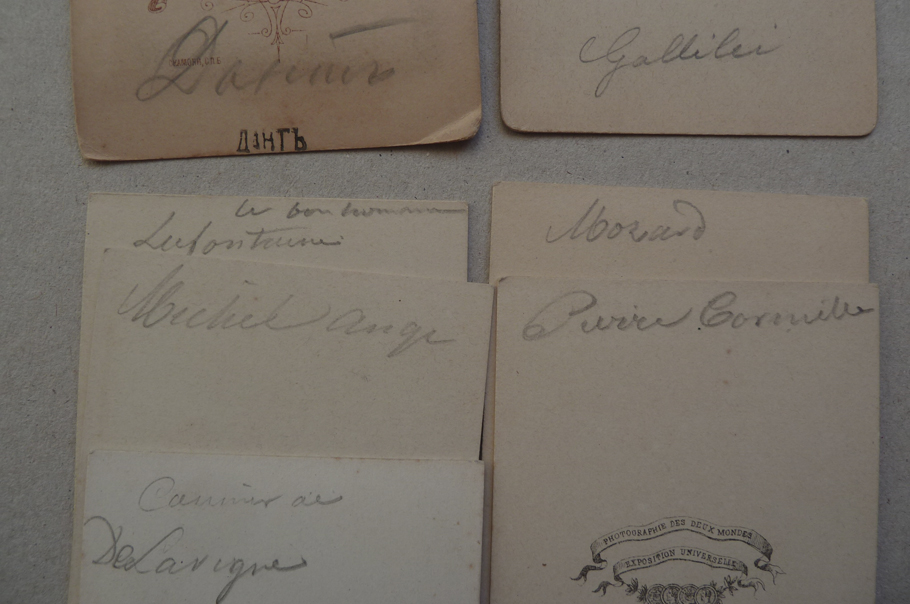 ДАНТЪ
Gallilei
le bon homme
Lafontaine
Michel Ange
Mozard
Pierre Corneille
Casimir de
DeLavigne
PHOTOGRAPHIE DES DEUX MONDES
EXPOSITION UNIVERSELLE